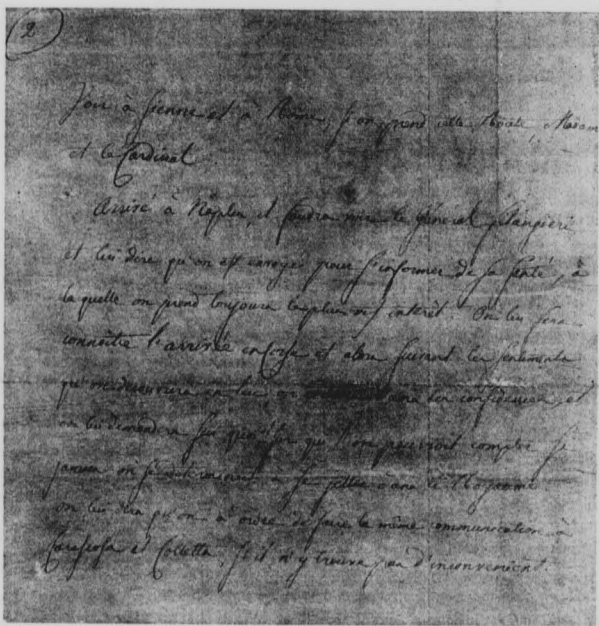 2
Voir à Sienne et à Rome, si on prend cette Route, Madame
et le Cardinal
Arrivé à Naples, il faudra voir le général filangieri
et lui dire qu'on est envoyé pour s'informer de sa santé, à
la quelle on prend toujours le plus vif intérêt. On lui fera
connoître l'arrivée en Corse et alors suivant les sentiments
qu'on découvrira en lui on sera en confidence, et
on lui demandera sur quoi l'on pourroit compter si
jamais on se à se jetter dans le Royaume
on lui dira qu'on a ordre de faire la même communication à
Carascosa et Colletta, s'il n'y trouve pas d'inconvénient.